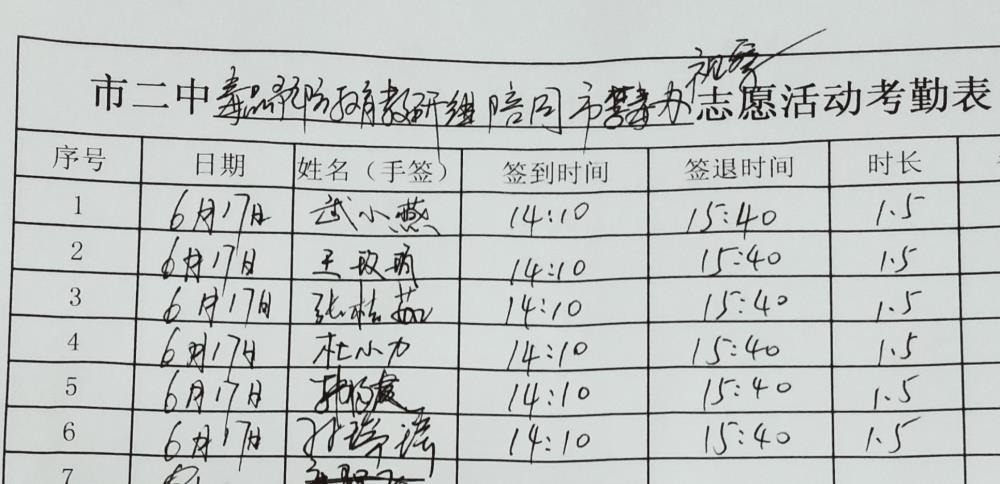 市二中毒品预防教育教研组陪同市禁毒办视察志愿活动考勤表
序号 日期 姓名（手签） 签到时间 签退时间 时长
1 6月17日 武小燕 14:10 15:40 1.5
2 6月17日 王玫 14:10 15:40 1.5
3 6月17日 张桂茹 14:10 15:40 1.5
4 6月17日 杜小力 14:10 15:40 1.5
5 6月17日 14:10 15:40 1.5
6 6月17日 14:10 15:40 1.5
7